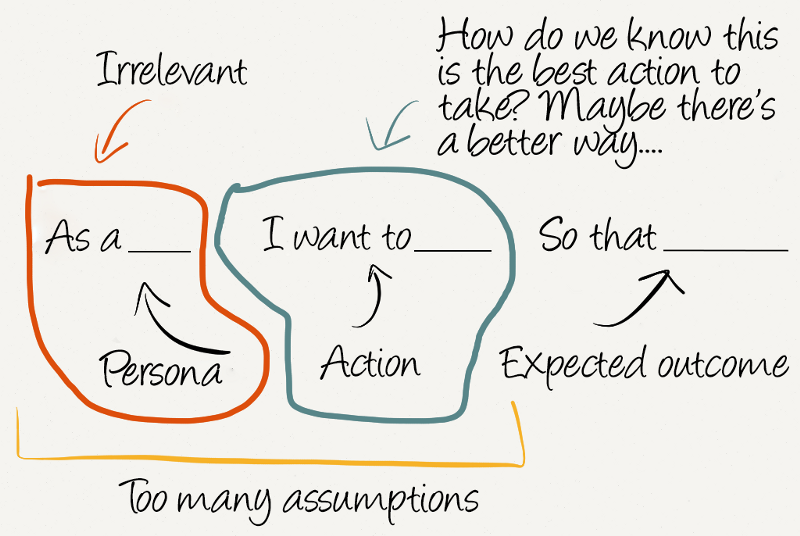 Irrelevant
How do we know this
is the best action to
take? Maybe there's
a better way....
As a ____ I want to _____ So that ________
Persona Action Expected outcome
Too many assumptions